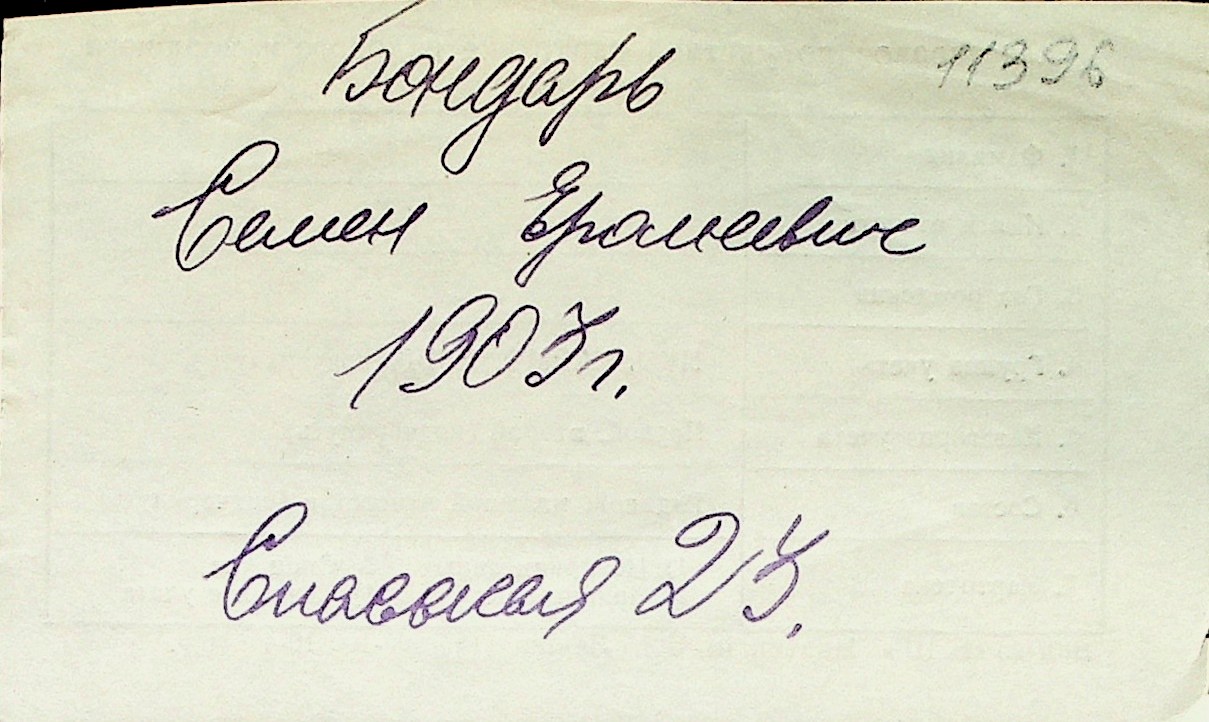 11396
Бондарь
Семен Еромеевич
1903г.
Спасская 23.